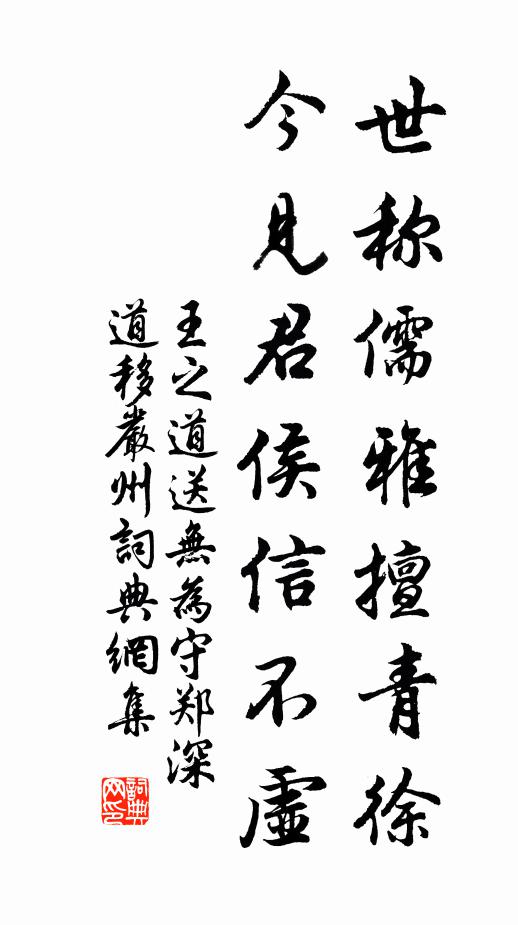 世称儒雅擅青徐
今見君侯信不虚
王之道送無為守郑深
道移嚴州詞典網集
詞典网印